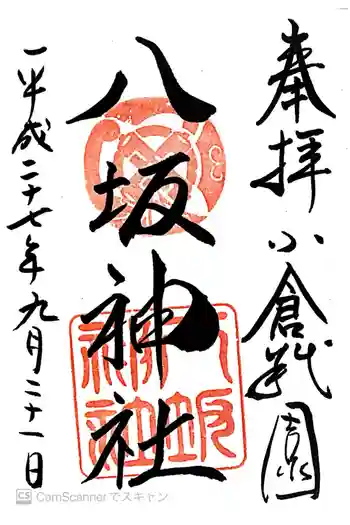 奉拝 小倉祇園
八坂神社
平成二十七年九月二十一日
八坂神社
CS CamScanner でスキャン